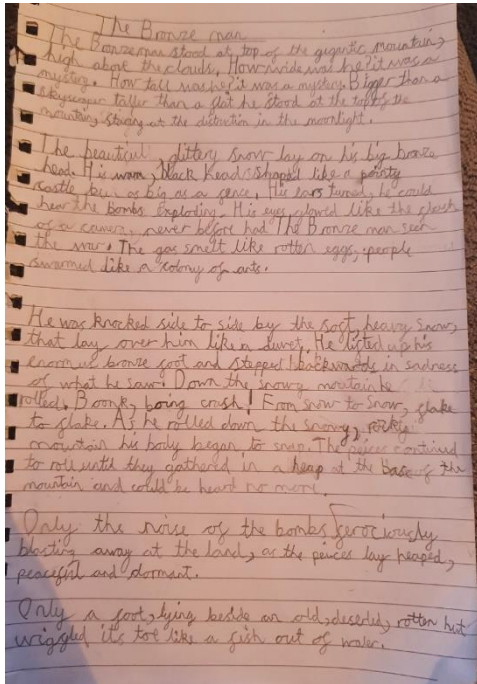 The Bronze man
The Bronzeman stood at top of the gigantic mountain,
high above the clouds. How wide was he? it was a
mystery. How tall was he? it was a mystery. Bigger than a
skyscraper taller than a flat he stood at the top of the
mountain, staring at the distruction in the moonlight.
The beautiful glittery snow lay on his big bronze
head. His warm, black head shaped like a pointy
castle been as big as a gence. His ears turned, he could
hear the Bombs exploding. His eyes glowed like the flash
of a camera, never before had The Bronze man seen
the war. The gas smelt like rotten eggs, people
swarmed like a colony of ants.
He was knocked side to side by the soft, heavy snow,
that lay over him like a duvet. He lifted up his
enormous bronze foot and stepped backwards in sadness
of what he saw. Down the snowy moutain he
rolled. Boonk, boing crash! From snow to snow, flake
to flake. As he rolled down the snowy, rocky
mountain his body began to snap. The peices continued
to roll until they gathered in a heap at the base of the
mountain and could be heard no more.
Only the noise of the bombs ferociously
blasting away at the land, as the peices lay heaped,
peaceful and dormant.
Only a foot, lying beside an old, deserted, rotten hut
wriggled it's toe like a fish out of water.